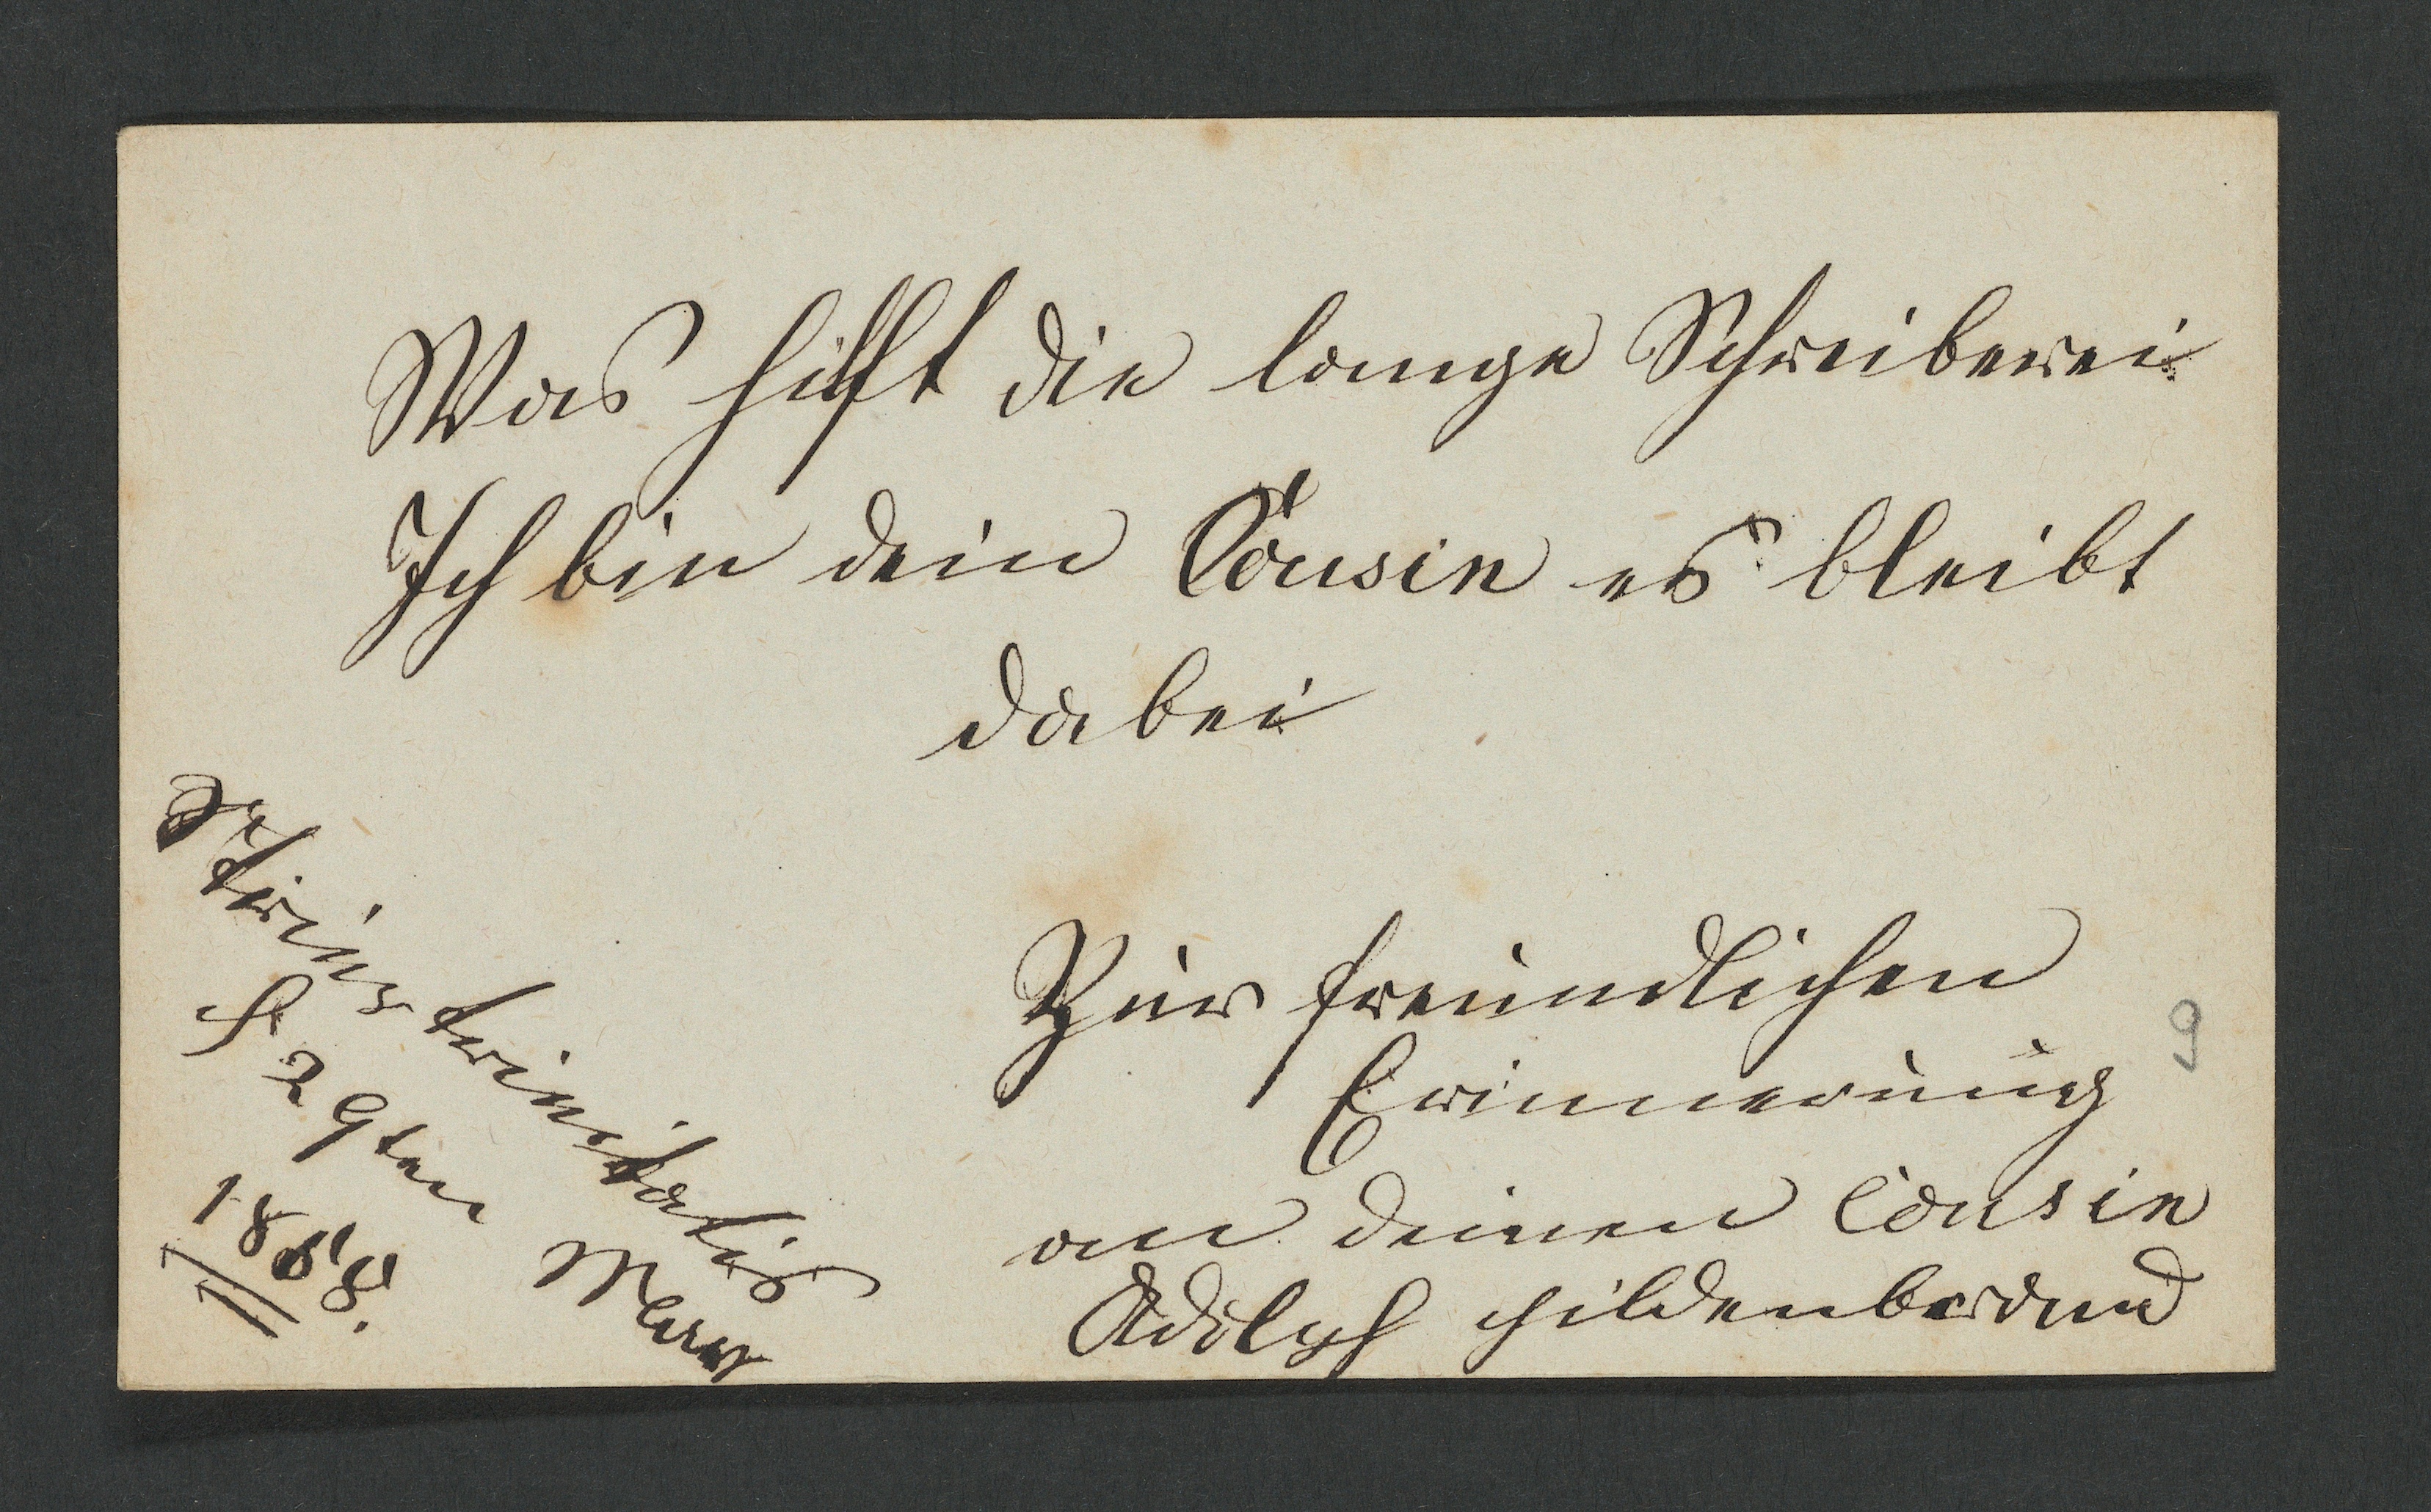 Was hilft die lange Schreiberei
Ich bin dein Cousin es bleibt
dabei
Zur freundlichen
Erinnerung
9
an deinen Cousin
Adolph Hildenbrand
trinitatis
29ten
1868.